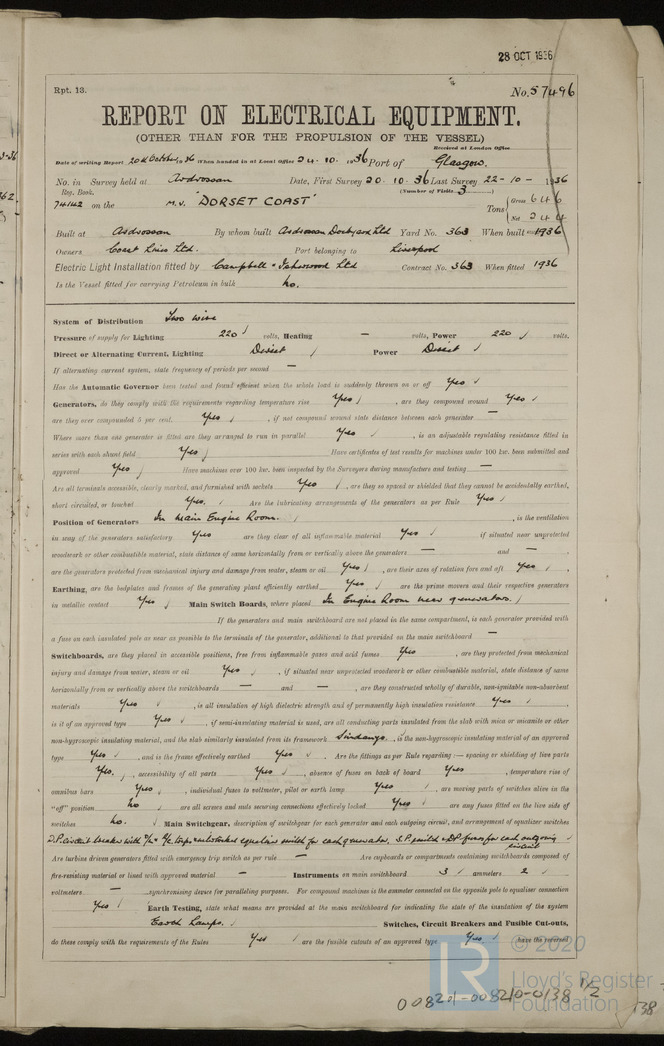 28 OCT 1936
Rpt. 13.
No. 57496
REPORT ON ELECTRICAL EQUIPMENT.
(OTHER THAN FOR THE PROPULSION OF THE VESSEL)
Received at London Office
Date of writing Report 20th October 1936 When handed in at Local Office 24.10.1936 Port of Glasgow.
No. in Survey held at Ardrossan Date, First Survey 20.10.36 Last Survey 22-10-1936
Reg. Book. (Number of Visits 3)
74142 on the M.V. "DORSET COAST" Tons { Gross 646
Net 244
Built at Ardrossan By whom built Ardrossan Dockyard Ltd Yard No. 363 When built 1936
Owners Coast Lines Ltd. Port belonging to Liverpool
Electric Light Installation fitted by Campbell & Isherwood Ltd Contract No. 363 When fitted 1936
Is the Vessel fitted for carrying Petroleum in bulk No.
System of Distribution Two wire
Pressure of supply for Lighting 220 volts, Heating — volts, Power 220 volts.
Direct or Alternating Current, Lighting Direct Power Direct
If alternating current system, state frequency of periods per second —
Has the Automatic Governor been tested and found efficient when the whole load is suddenly thrown on or off Yes
Generators, do they comply with the requirements regarding temperature rise Yes, are they compound wound Yes
are they over compounded 5 per cent. Yes, if not compound wound state distance between each generator —
Where more than one generator is fitted are they arranged to run in parallel Yes, is an adjustable regulating resistance fitted in
series with each shunt field Yes Have certificates of test results for machines under 100 kw. been submitted and
approved Yes Have machines over 100 kw. been inspected by the Surveyors during manufacture and testing —
Are all terminals accessible, clearly marked, and furnished with sockets Yes, are they so spaced or shielded that they cannot be accidentally earthed,
short circuited, or touched Yes. Are the lubricating arrangements of the generators as per Rule Yes
Position of Generators In Main Engine Room. , is the ventilation
in way of the generators satisfactory Yes are they clear of all inflammable material Yes if situated near unprotected
woodwork or other combustible material, state distance of same horizontally from or vertically above the generators — and —,
are the generators protected from mechanical injury and damage from water, steam or oil Yes, are their axes of rotation fore and aft Yes,
Earthing, are the bedplates and frames of the generating plant efficiently earthed Yes are the prime movers and their respective generators
in metallic contact Yes Main Switch Boards, where placed In Engine Room near generators.
If the generators and main switchboard are not placed in the same compartment, is each generator provided with
a fuse on each insulated pole as near as possible to the terminals of the generator, additional to that provided on the main switchboard —
Switchboards, are they placed in accessible positions, free from inflammable gases and acid fumes Yes, are they protected from mechanical
injury and damage from water, steam or oil Yes, if situated near unprotected woodwork or other combustible material, state distance of same
horizontally from or vertically above the switchboards — and —, are they constructed wholly of durable, non-ignitable non-absorbent
materials Yes, is all insulation of high dielectric strength and of permanently high insulation resistance Yes,
is it of an approved type Yes, if semi-insulating material is used, are all conducting parts insulated from the slab with mica or micanite or other
non-hygroscopic insulating material, and the slab similarly insulated from its framework Sindanyo., is the non-hygroscopic insulating material of an approved
type Yes, and is the frame effectively earthed Yes. Are the fittings as per Rule regarding:— spacing or shielding of live parts
Yes., accessibility of all parts Yes, absence of fuses on back of board Yes, temperature rise of
omnibus bars Yes, individual fuses to voltmeter, pilot or earth lamp Yes, are moving parts of switches alive in the
"off" position No are all screws and nuts securing connections effectively locked Yes are any fuses fitted on the live side of
switches No. Main Switchgear, description of switchgear for each generator and each outgoing circuit, and arrangement of equalizer switches
D.P. circuit breaker with O/L & R/C trips interlocked equaliser switch for each generator, S.P. switch & D.P. fuses for each outgoing
circuit
Are turbine driven generators fitted with emergency trip switch as per rule — Are cupboards or compartments containing switchboards composed of
fire-resisting material or lined with approved material — Instruments on main switchboard 3 ammeters 2
voltmeters — synchronising device for paralleling purposes. For compound machines is the ammeter connected on the opposite pole to equaliser connection
Yes Earth Testing, state what means are provided at the main switchboard for indicating the state of the insulation of the system
Earth Lamps. Switches, Circuit Breakers and Fusible Cut-outs,
do these comply with the requirements of the Rules Yes, are the fusible cutouts of an approved type Yes, have the reversed
© 2020
LR
Lloyd's Register
Foundation
008201-008210-0138 1/2